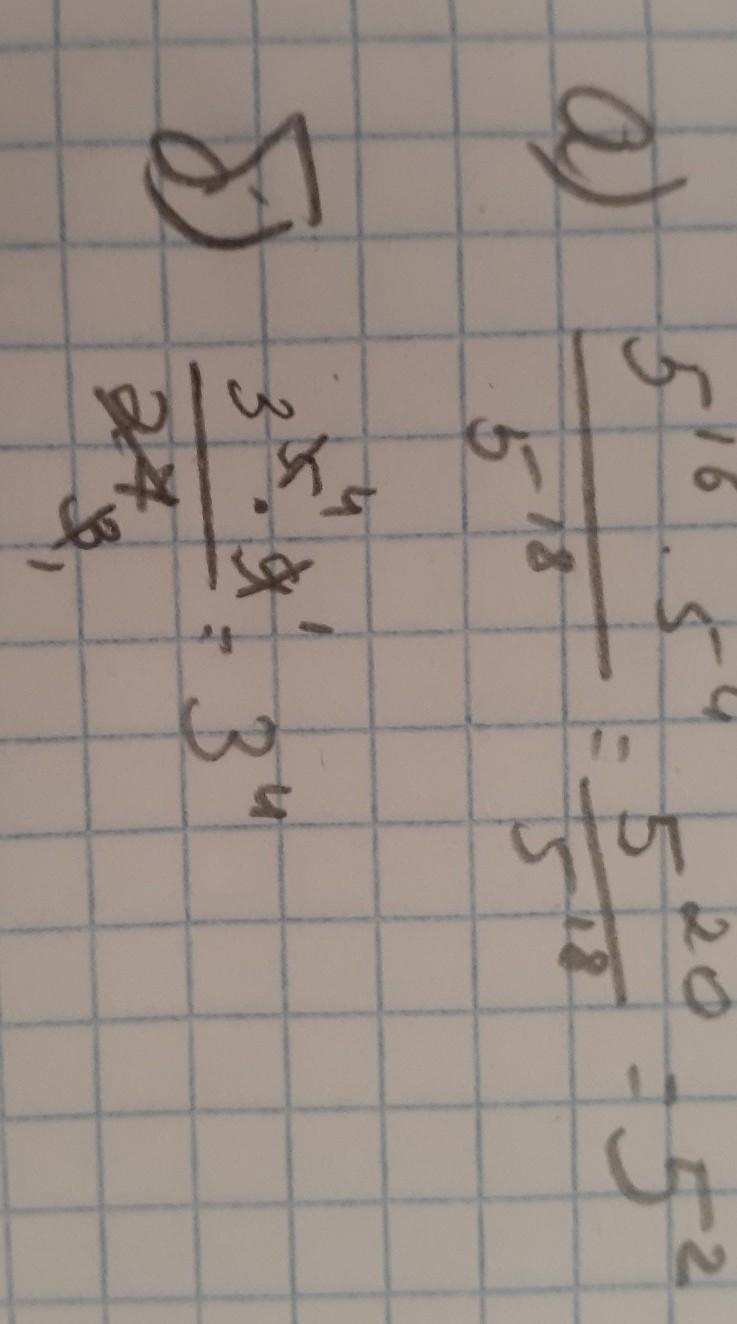 а) 5^16 · 5^4 / 5^18 = 5^20 / 5^18 = 5^2
б) 3^5 4 · 9 1 / 27 3 1 = 3^4